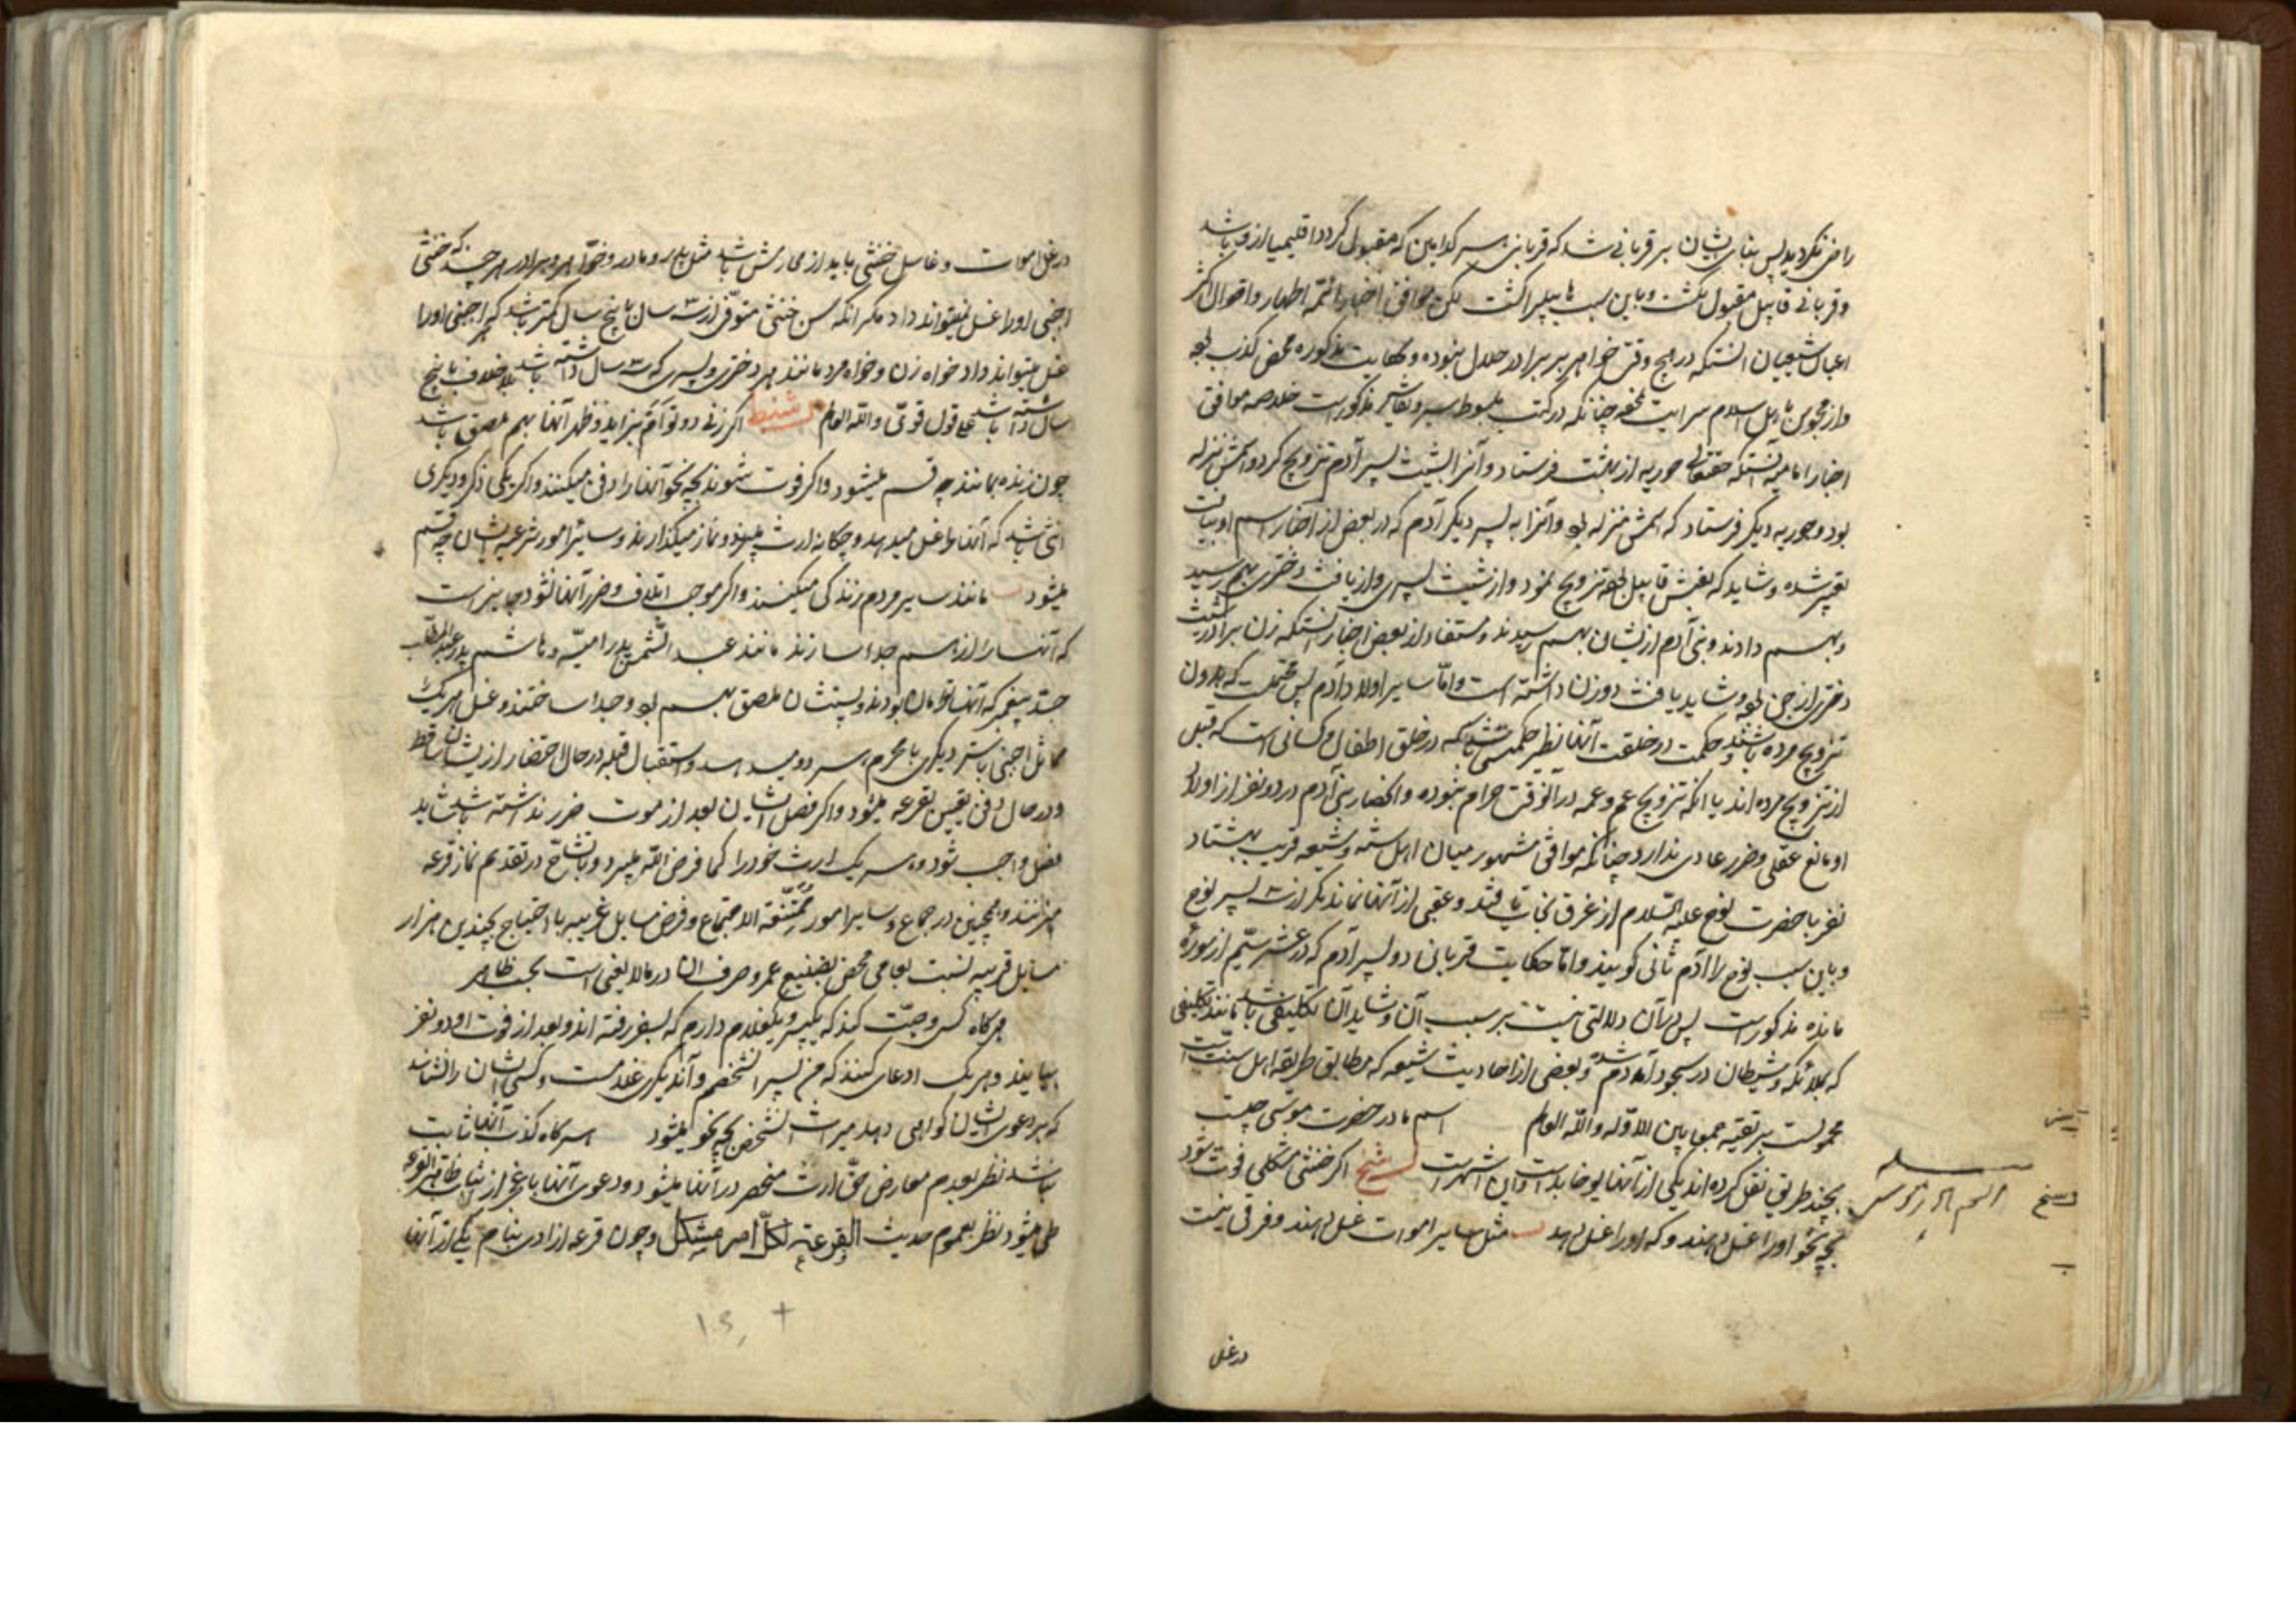 راضی نکردید پس بنای ایشان بر قربانی شد که قربانی هر کدامین که مقبول کردد اقلیمیا از او باشد
و قربانی قابیل مقبول نکشت و باین سبب هابیل را کشت لکن موافق اخبار ائمّه اطهار و اقوال اکثر
اعیان شیعیان آنستکه در هیچ وقتی خواهر بر برادر حلال نبوده و حکایت مذکوره محض کذب بوده
و از مجوس باهل اسلام سرایت نموده چنانکه در کتب مبسوط سیر و تفاسیر مذکور است خلاصه موافق
اخبار امامیه آنستکه حقتعالی حوریه از بهشت فرستاد و آنرا بشیث پسر آدم تزویج کرد و اسمش نزله
بود و حوریه دیکر فرستاد که اسمش منزله بود و آنرا به پسر دیکر آدم که در بعض از اخبار اسم او بیافث
تعبیر شده و شاید که لقبش قابیل بوده تزویج نمود و از شیث پسری و از یافث دختری بهم رسید
و بهم دادند و بنی آدم از ایشان بهم رسیدند و مستفاد از بعض اخبار آنستکه زن برادر شیث
دختری از جن بوده و شاید یافث دو زن داشته است و امّا سایر اولاد آدم پس محتملست که بدون
تزویج مرده باشند و حکمت در خلقت آنها نظیر حکمتی باشد که در خلق اطفال و کسانی است که قبل
از تزویج مرده اند یا آنکه تزویج عم و عمه در آنوقت حرام نبوده و انحصار بنی آدم در دو نفر از اولاد
او مانع عقلی و ضرر عادی ندارد چنانکه موافق مشهور میان اهل سنّه و شیعه قریب بهشتاد
نفر با حضرت نوح علیه السّلام از غرق نجات یافتند و عقبی از آنها نماند مکر از ۳ پسر نوح
و باین سبب نوح را آدم ثانی کویند و امّا حکایت قربانی دو پسر آدم که در عشر سیّم از سوره
مائده مذکور است پس در آن دلالتی نیست بر سبب آن و شاید آن تکلیفی باشد مانند تکلیفی
که بملائکه و شیطان در سجود آدم شد و بعضی از احادیث شیعه که مطابق طریقه اهل سنّت است
محمولست بر تقیّه جمعا بین الادّله و الله العالم اسم مادر حضرت موسی چیست
بچند طریق نقل کرده اند یکی از آنها یوخابد است و این اشهر است اکر خنثی مشکلی فوت شود
بچه نحو او را غسل دهند و که او را غسل دهد مثل سایر اموات غسل دهند و فرقی نیست
در غسل
در غسل اموات و غاسل خنثی باید از محارمش باشد مثل پدر و مادر و خواهر و برادر هر چند که خنثی
اجنبی او را غسل نمیتواند داد مکر آنکه سن خنثی متوفّی از ۳ سال تا پنج سال کمتر باشد که اجنبی او را
غسل میتواند داد خواه زن و خواه مرد مانند هر دختری و پسری که ۳ سال داشته باشد بلا خلاف یا پنج
سال داشته باشد علی قول قویّ و الله العالم اکر زنی دو توأم بزاید و ظهر آنها بهم ملصق باشد
چون زنده بمانند چه قسم میشود و اکر فوت شوند بچه نحو آنها را دفن میکنند و اکر یکی ذکر و دیکری
انثی باشد که آنها را غسل میدهد و چکانه ارث میبرند و نماز میکذارند و سائر امور شرعیه ایشان چه قسم
میشود مانند سایر مردم زندکی میکنند و اکر موجب اتلاف و ضرر آنها نشود جایز است
که آنها را از هم جدا سازند مانند عبد الشّمس پدر امیّه و هاشم پدر عبد المطّلب
جدّ پیغمبر که آنها توأمان بودند و پشتشان ملصق بهم بود و جدا ساختند و غسل هر یک را
مماثل اجنبی با ستر دیکری یا محرم هر دو میدهد و استقبال قبله در حال احتضار از ایشان ساقط
و در حال دفن بتعیین بقرعه میشود و اکر فصل ایشان بعد از موت ضرر نداشته باشد شاید
فصل واجب شود و هر یک ارث خود را کما فرض الله میبرد و با تشاحّ در تقدیم نماز قرعه
میزنند و همچنین در جماع و سایر امور ممتنعة الاجتماع و فرض مسایل غریبه با احتیاج بچندین هزار
مسایل قریبه نسبت بعامی محض تضییع عمر و صرف آن در مالا یعنی است بحسب ظاهر
هرکاه کسی وصیّت کند که یکپسر و یکغلام دارم که بسفر رفته اند و بعد از فوت او دو نفر
بیایند و هر یک ادعای کنند که من پسر آنشخصم و آندیکری غلامست و کسی ایشان را نشناسد
که بر دعوی ایشان کواهی دهد میراث آنشخص بچه نحو میشود هرکاه کذب آنها ثابت
نباشد نظر بعدم معارض حقّ ارث منحصر در آنها میشود و دعوی آنها
طی میشود نظر بعموم حدیث القرعة لکلّ امر مشکل و چون قرعه ازادی بنام یکی از آنها